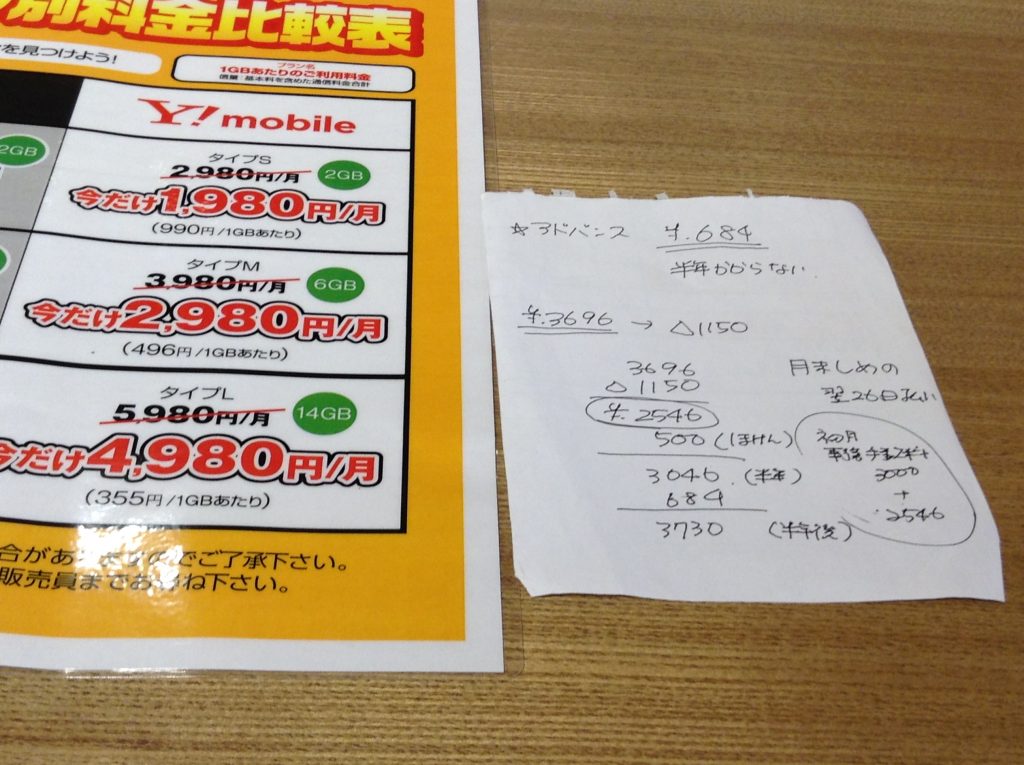 別料金比較表
を見つけよう!
プラン名
1GBあたりのご利用料金
Y!mobile
2GB
タイプS
2,980円/月
2GB
今だけ1,980円/月
(990円/1GBあたり)
タイプM
3,980円/月
6GB
今だけ2,980円/月
(496円/1GBあたり)
タイプL
5,980円/月
14GB
今だけ4,980円/月
(355円/1GBあたり)
合がありますのでご了承下さい。
販売員までお尋ね下さい。
☆アドバンス ¥.684
半年かからない.
¥.3696 → △1150
3696
△1150
¥.2546
500 (ほけん)
3046. (半年)
684
3730 (半年後)
月末しめの
翌26日払い
初月
3000
+
2546